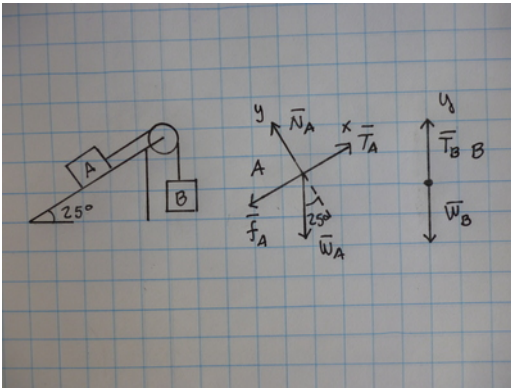 A
25°
B
y
N̄A
x
T̄A
A
f̄A
25°
W̄A
y
T̄B
B
W̄B